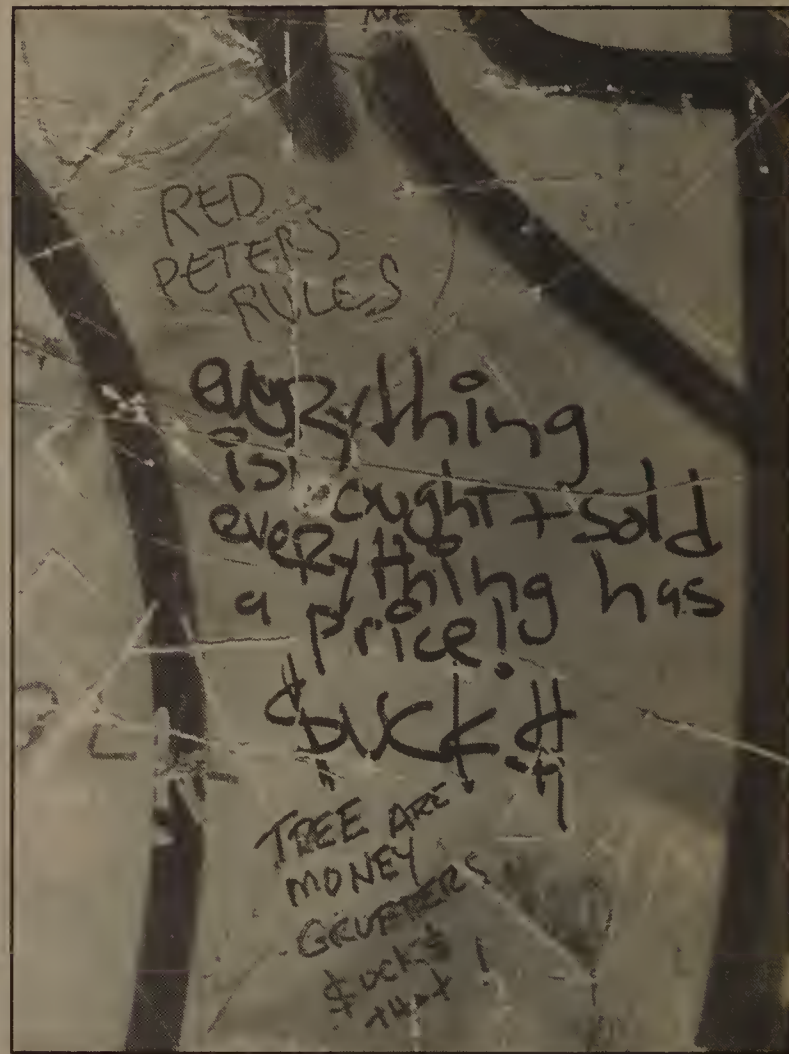 ME
RED
PETERS
RULES
everything
is ought + sold
everything has
a price!
TREE ARE
MONEY
GRUFTERS
$uck$
that !